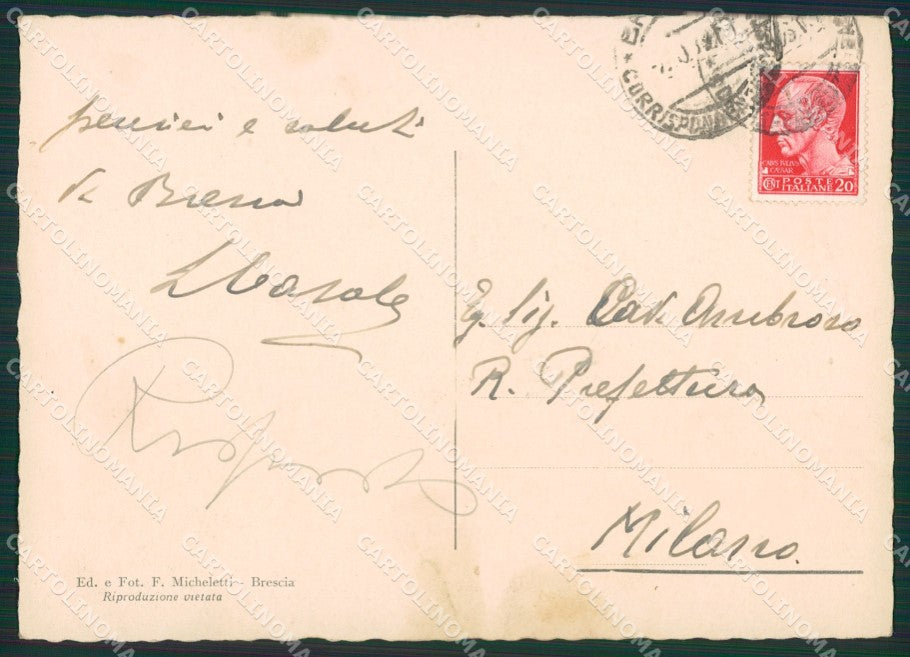 pensieri e saluti
da Brescia
Risposto
Eg. Sig. Cav. Ambroso
R. Prefettura
Milano.
CORRISPON
CAIVS IVLIVS
CAESAR
POSTE
ITALIANE
CENT
20
Ed. e Fot. F. Micheletti - Brescia
Riproduzione vietata
CARTOLINOMANIA